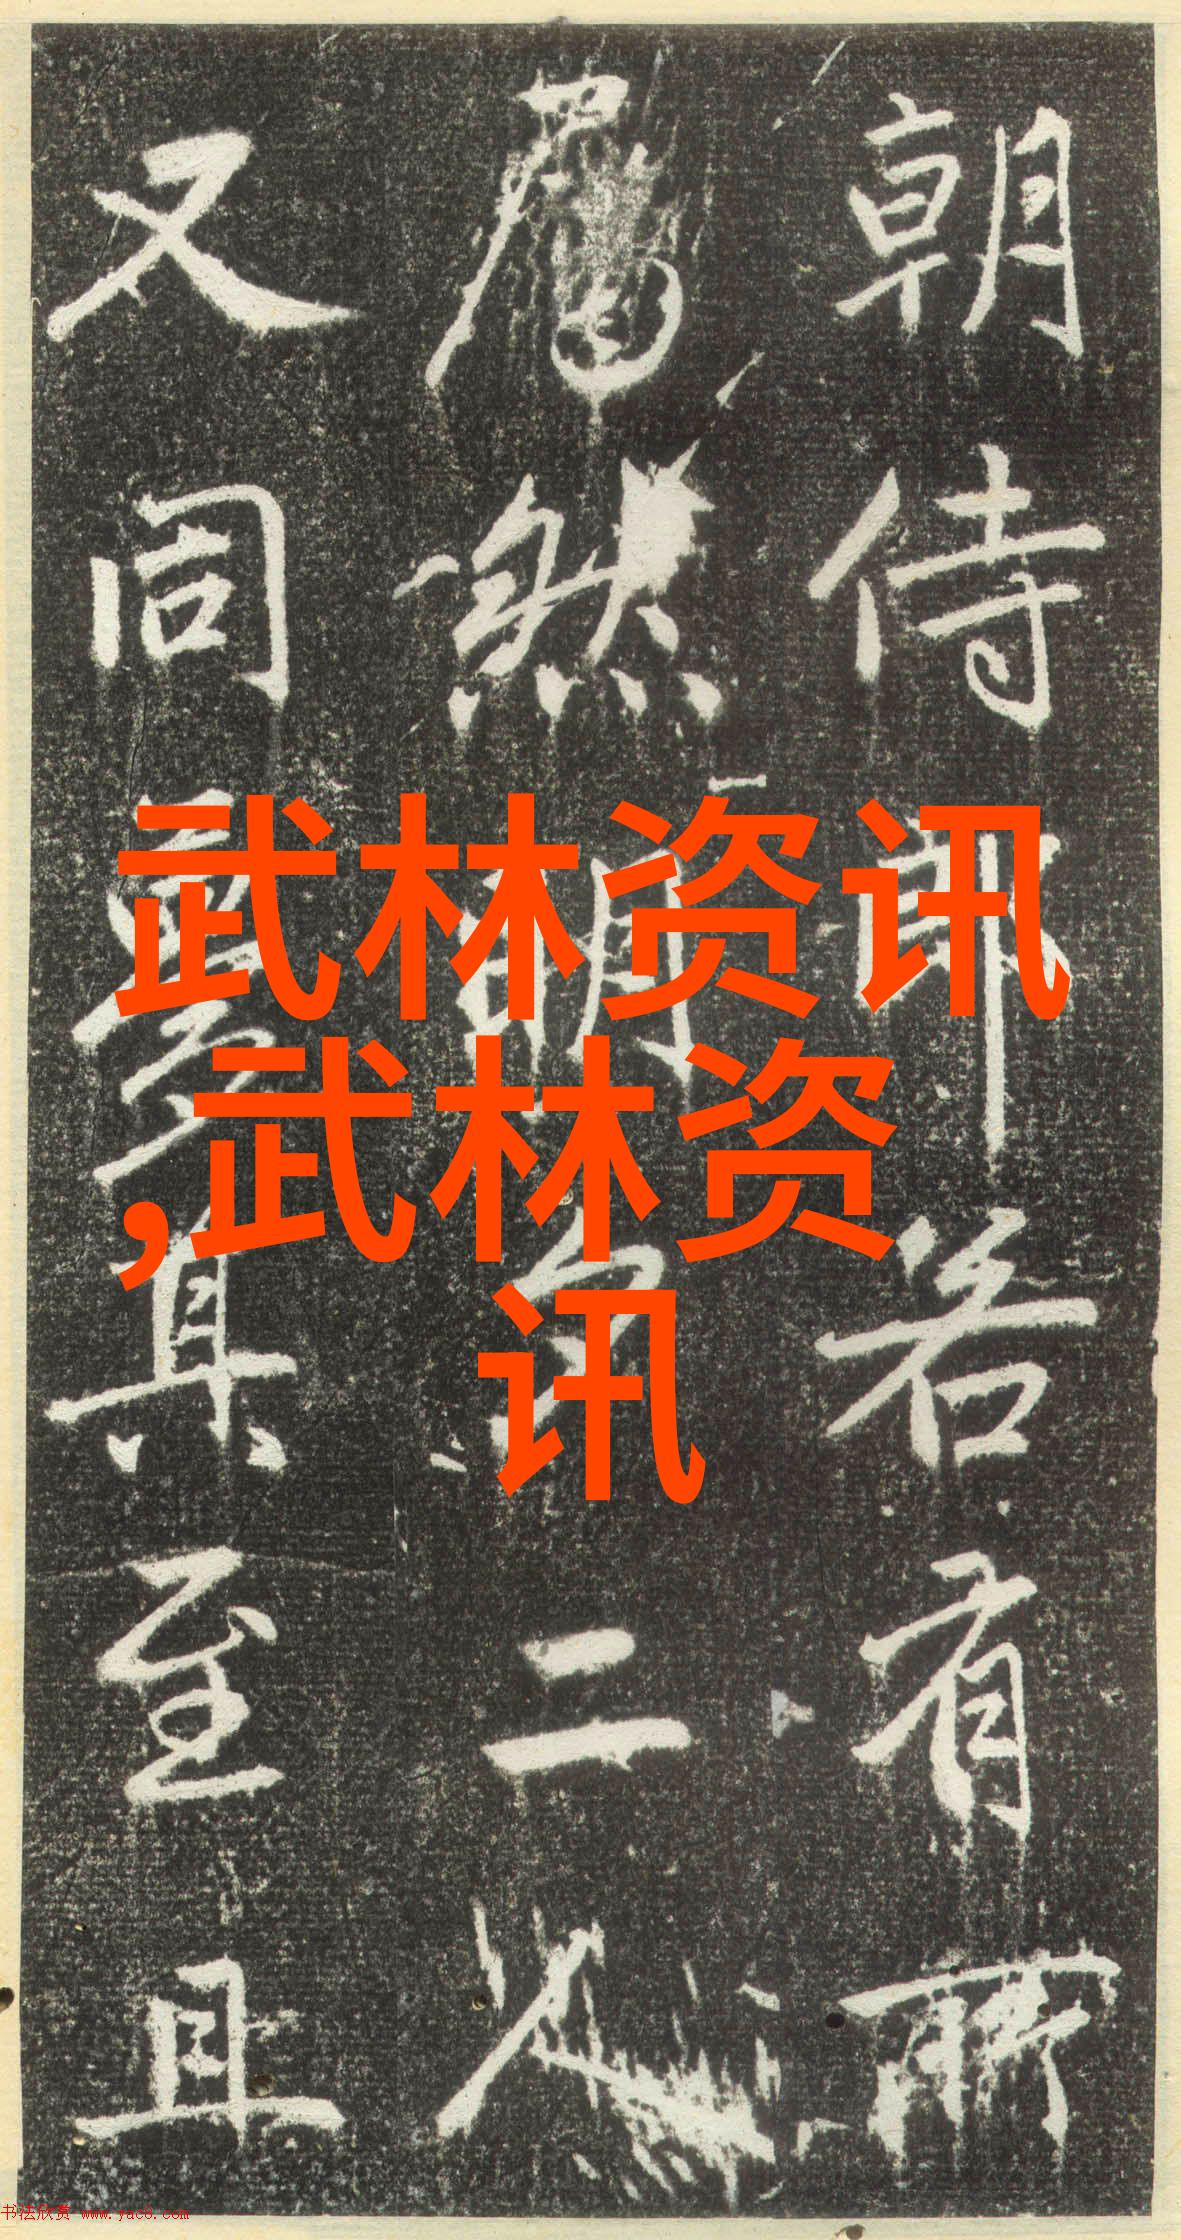 朝侍郎若有所
然明白二人
又同夢其至且
武林资讯
,武林资
讯
书法欣赏 www.yac8.com